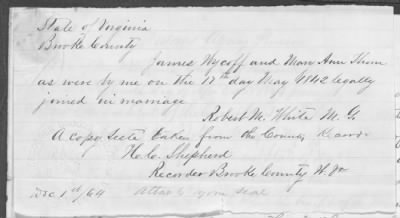 State of Virginia
Brooke County
James Wycoff and Mary Ann Thom
as were by me on the 17th day May 1842 legally
joined in marriage
Robert M. White M. G.
A copy Teste taken from the County Records
H. C. Shepherd
Recorder Brooke County W. Va
Dec 1st/64 Attach your seal